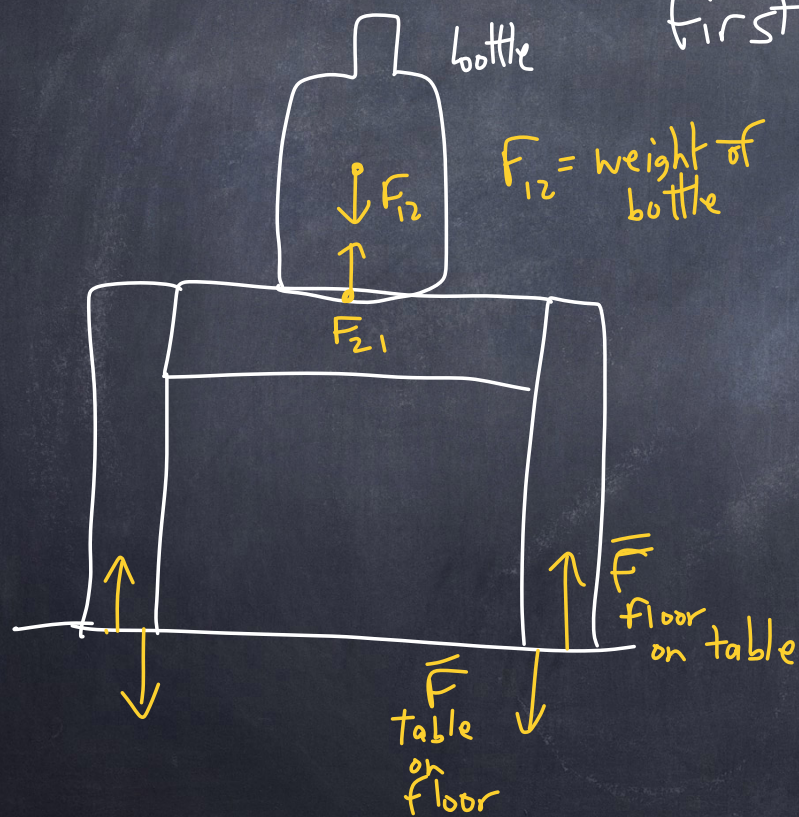 first
bottle
F12 = weight of
bottle
F12
F21
F
floor
on table
F
table
on
floor